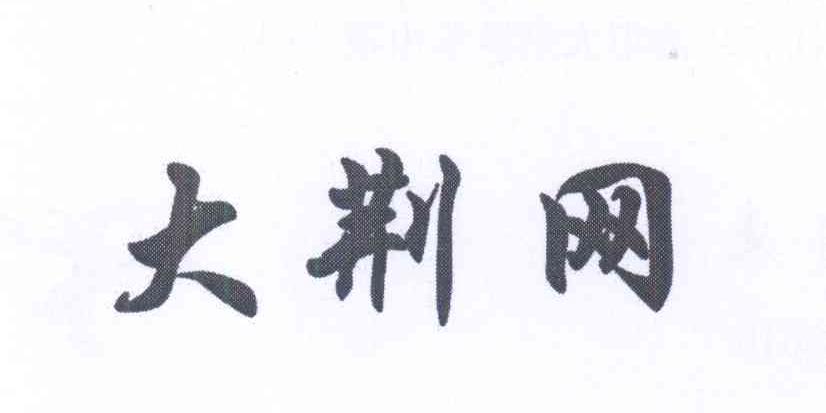 大荆网